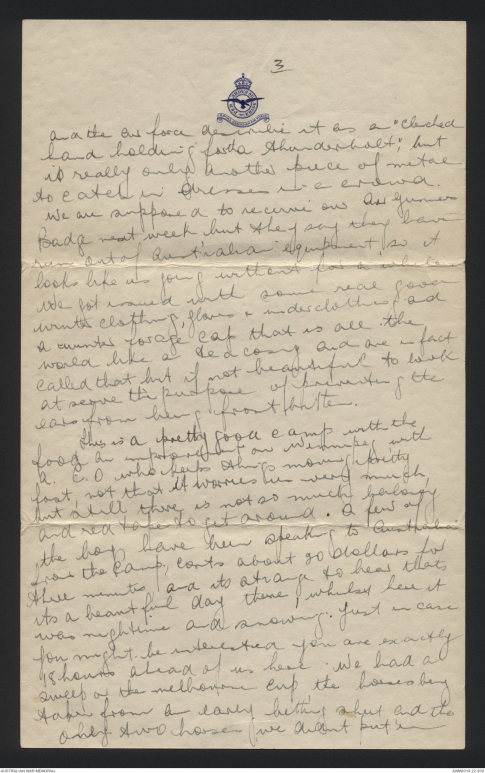 3
and the air force describe it as a "clenched
hand holding forth a thunderbolt", but
is really only another piece of metal
to catch in dresses in a crowd.
We are supposed to receive our Air Gunners
Badge next week but they say they have
run out of Australian equipment, so it
looks like us going without for a while.
We got issued with some real good
winter clothing, gloves & underclothing and
a winter forage cap that is all the
world like a tea cosy and are in fact
called that but if not beautiful to look
at serve the purpose of preventing the
ears from being frost bitten.
This is a pretty good camp with the
food an improvement on Winnipeg with
a C.O who keeps things moving pretty
fast, not that it worries us very much,
but still there is not so much
and red tape to get around. A few of
the boys have been speaking to Australia
from the Camp, costs about 20 dollars for
three minutes and its strange to hear that
its a beautiful day there, whilst here it
was nightime and snowing. Just in case
you might be interested you are exactly
18 hours ahead of us here. We had a
sweep on the melbourne cup the horses being
taken from an early betting sheet and the
only two horses we didnt put in
AUSTRALIAN WAR MEMORIAL